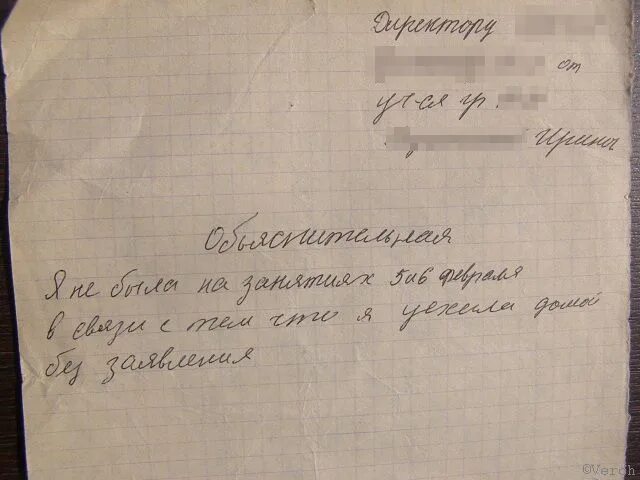 Директору
от
уч-ся гр.
Ирины
Объяснительная
Я не была на занятиях 5 и 6 февраля
в связи с тем что я уехала домой
без заявления
©Veroh